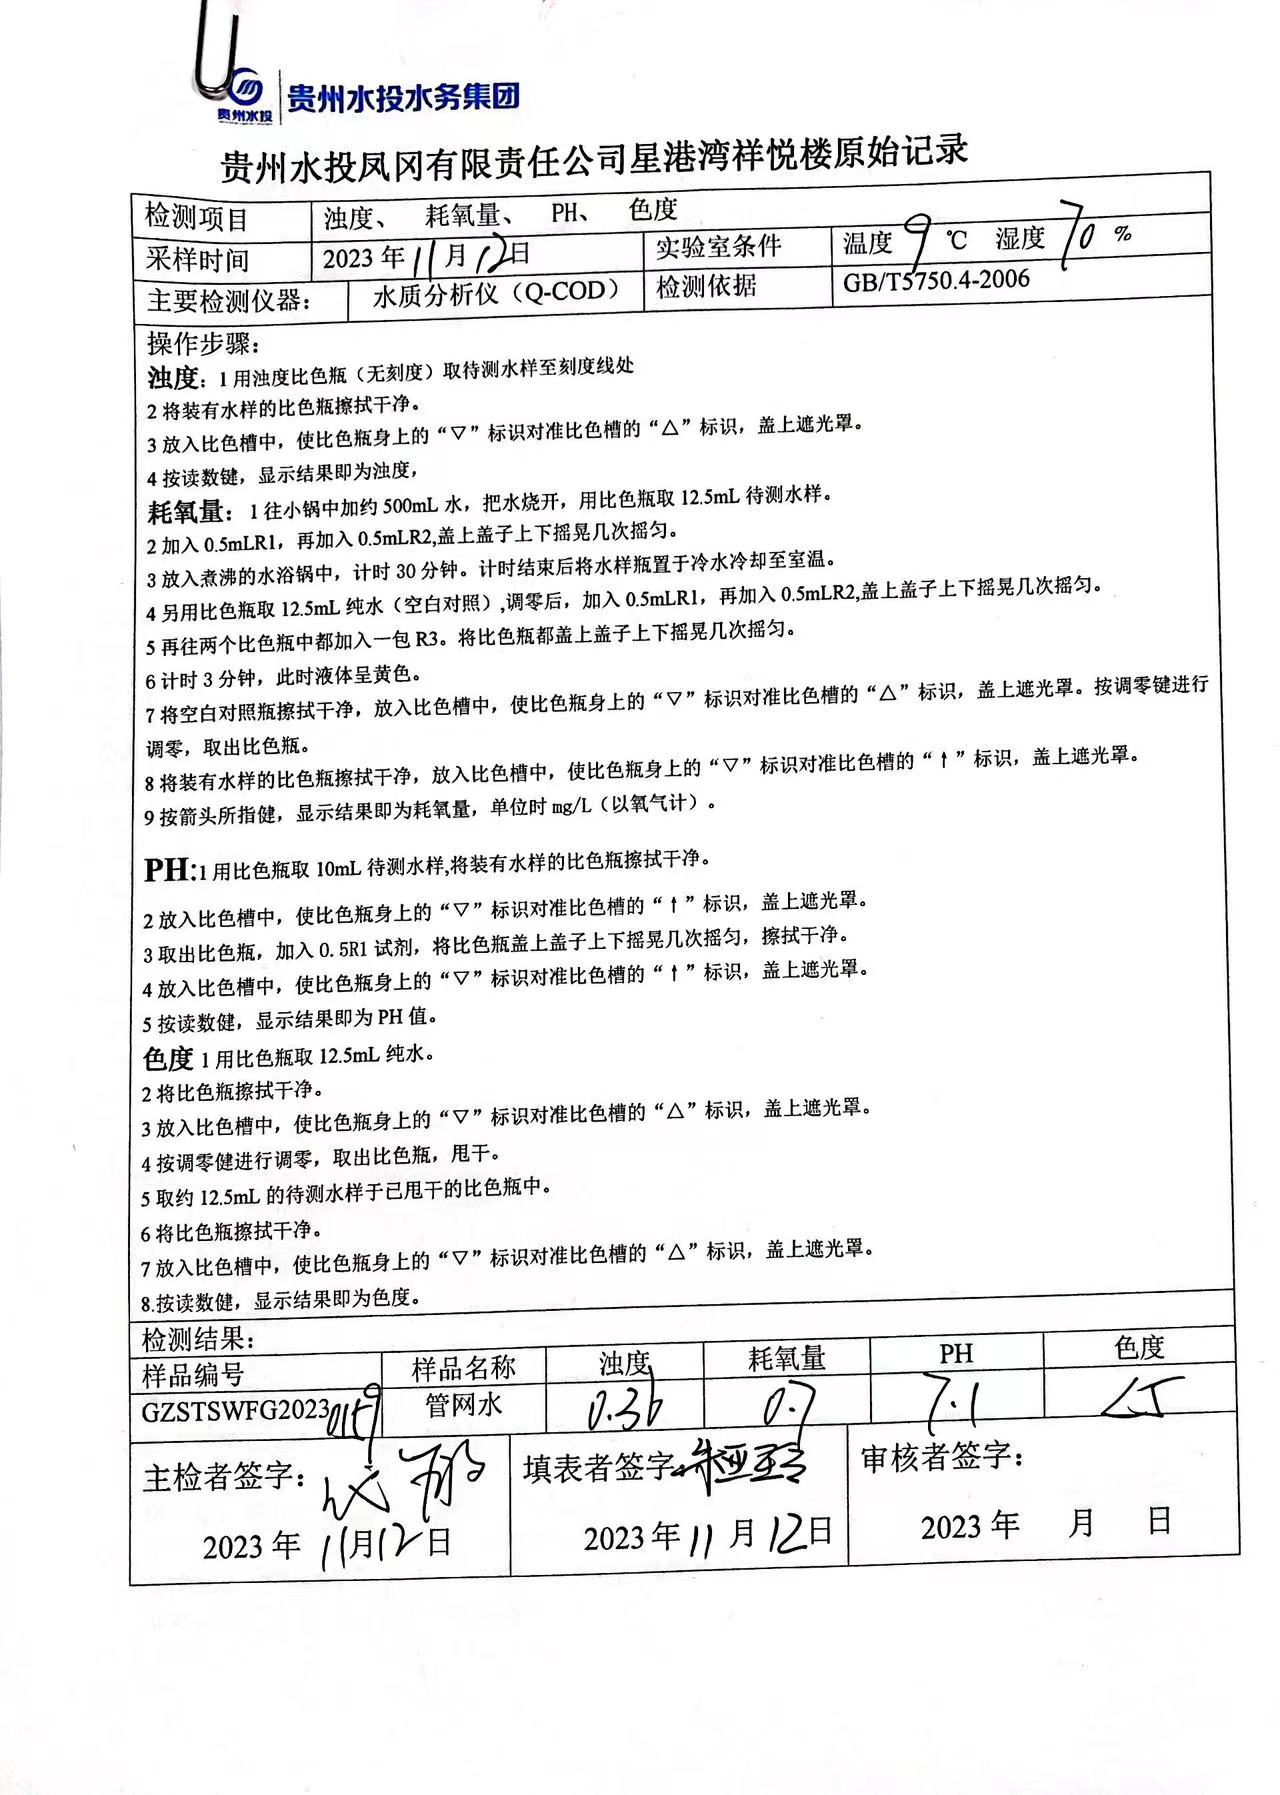 贵州水投
贵州水投水务集团
贵州水投凤冈有限责任公司星港湾祥悦楼原始记录
检测项目 浊度、 耗氧量、 PH、 色度
采样时间 2023年11月12日 实验室条件 温度 9 ℃ 湿度 70 %
主要检测仪器： 水质分析仪（Q-COD） 检测依据 GB/T5750.4-2006
操作步骤：
浊度：1 用浊度比色瓶（无刻度）取待测水样至刻度线处
2 将装有水样的比色瓶擦拭干净。
3 放入比色槽中，使比色瓶身上的“▽”标识对准比色槽的“△”标识，盖上遮光罩。
4 按读数键，显示结果即为浊度，
耗氧量：1 往小锅中加约 500mL 水，把水烧开，用比色瓶取 12.5mL 待测水样。
2 加入 0.5mLR1，再加入 0.5mLR2,盖上盖子上下摇晃几次摇匀。
3 放入煮沸的水浴锅中，计时 30 分钟。计时结束后将水样瓶置于冷水冷却至室温。
4 另用比色瓶取 12.5mL 纯水（空白对照）,调零后，加入 0.5mLR1，再加入 0.5mLR2,盖上盖子上下摇晃几次摇匀。
5 再往两个比色瓶中都加入一包 R3。将比色瓶都盖上盖子上下摇晃几次摇匀。
6 计时 3 分钟，此时液体呈黄色。
7 将空白对照瓶擦拭干净，放入比色槽中，使比色瓶身上的“▽”标识对准比色槽的“△”标识，盖上遮光罩。按调零键进行
调零，取出比色瓶。
8 将装有水样的比色瓶擦拭干净，放入比色槽中，使比色瓶身上的“▽”标识对准比色槽的“↑”标识，盖上遮光罩。
9 按箭头所指健，显示结果即为耗氧量，单位时 mg/L（以氧气计）。
PH:1 用比色瓶取 10mL 待测水样,将装有水样的比色瓶擦拭干净。
2 放入比色槽中，使比色瓶身上的“▽”标识对准比色槽的“↑”标识，盖上遮光罩。
3 取出比色瓶，加入 0.5R1 试剂，将比色瓶盖上盖子上下摇晃几次摇匀，擦拭干净。
4 放入比色槽中，使比色瓶身上的“▽”标识对准比色槽的“↑”标识，盖上遮光罩。
5 按读数健，显示结果即为 PH 值。
色度 1 用比色瓶取 12.5mL 纯水。
2 将比色瓶擦拭干净。
3 放入比色槽中，使比色瓶身上的“▽”标识对准比色槽的“△”标识，盖上遮光罩。
4 按调零健进行调零，取出比色瓶，甩干。
5 取约 12.5mL 的待测水样于已甩干的比色瓶中。
6 将比色瓶擦拭干净。
7 放入比色槽中，使比色瓶身上的“▽”标识对准比色槽的“△”标识，盖上遮光罩。
8.按读数健，显示结果即为色度。
检测结果：
样品编号 样品名称 浊度 耗氧量 PH 色度
GZSTSWFG20230159 管网水 0.36 0.7 7.1 <5
主检者签字： 填表者签字 审核者签字：
2023年11月12日 2023年11月12日 2023年 月 日